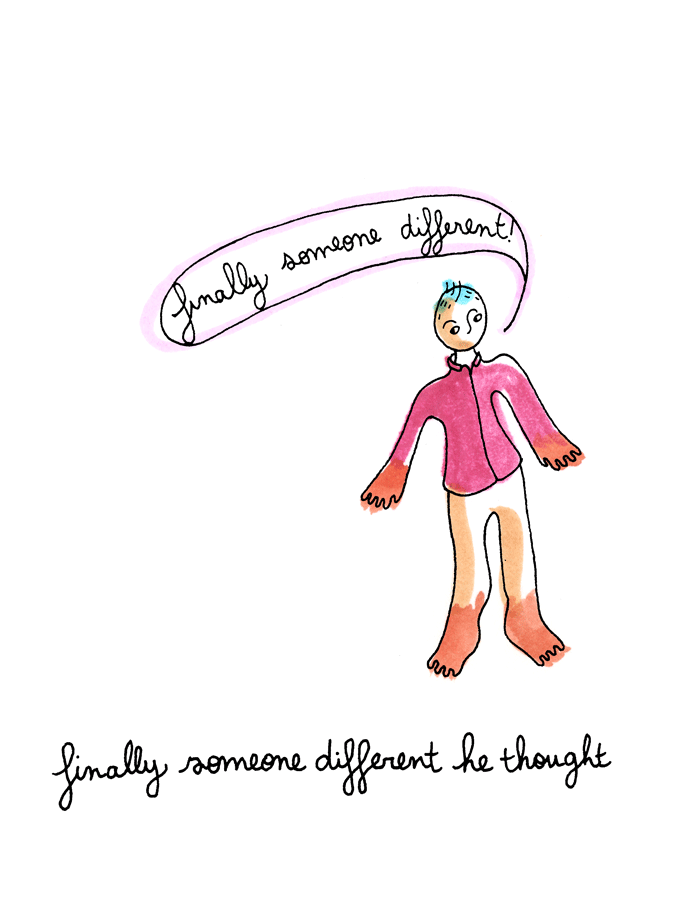 finally someone different!
finally someone different he thought